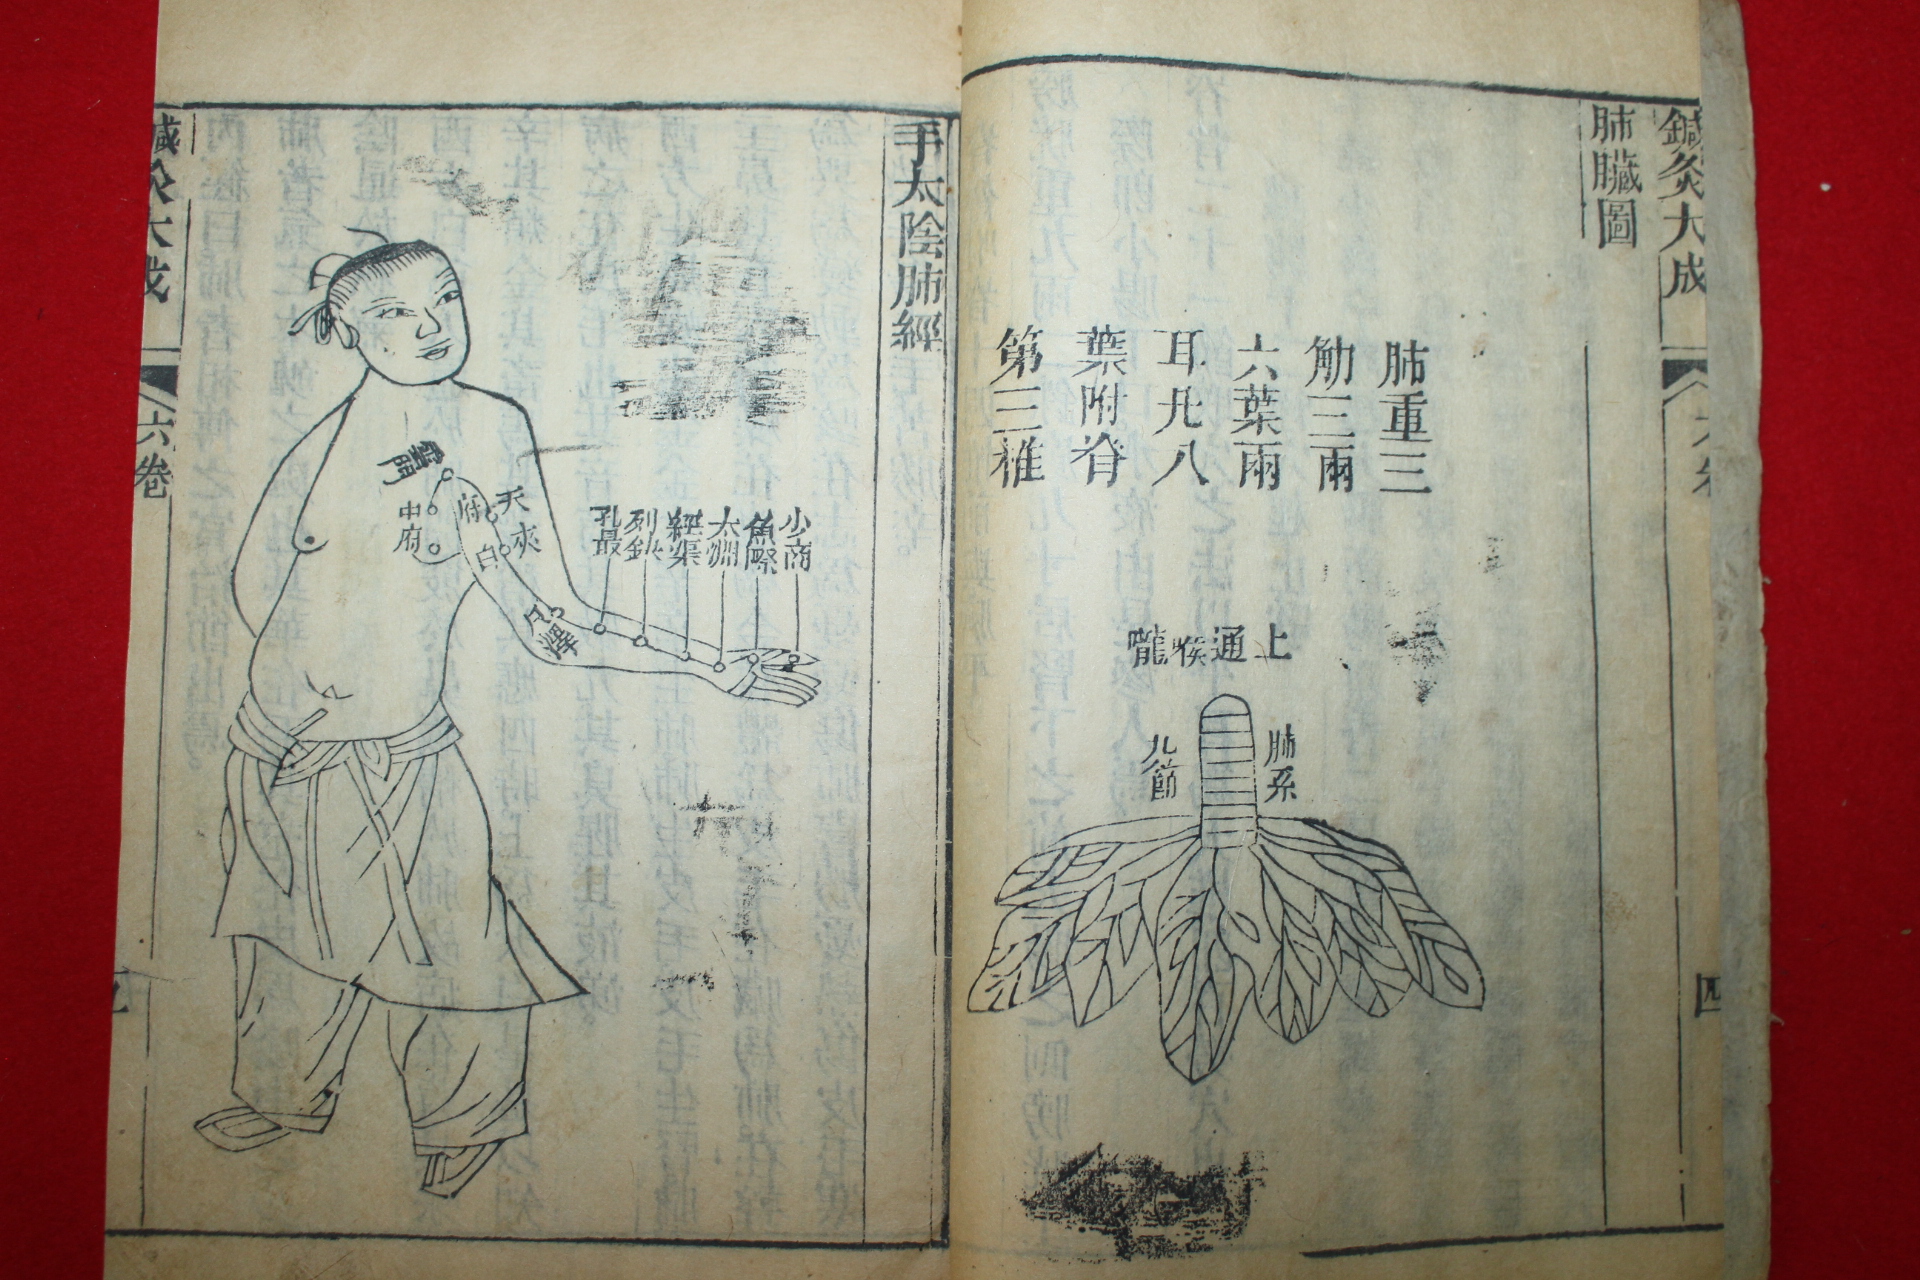 鍼灸大成
肺臟圖
肺重三
觔三兩
六葉兩
耳凡八
葉附脊
第三椎
上通喉嚨
肺系
九節
四
手太陰肺經
少商
魚際
太淵
經渠
列缺
孔最
尺澤
天府
夾白
雲門
中府
六卷